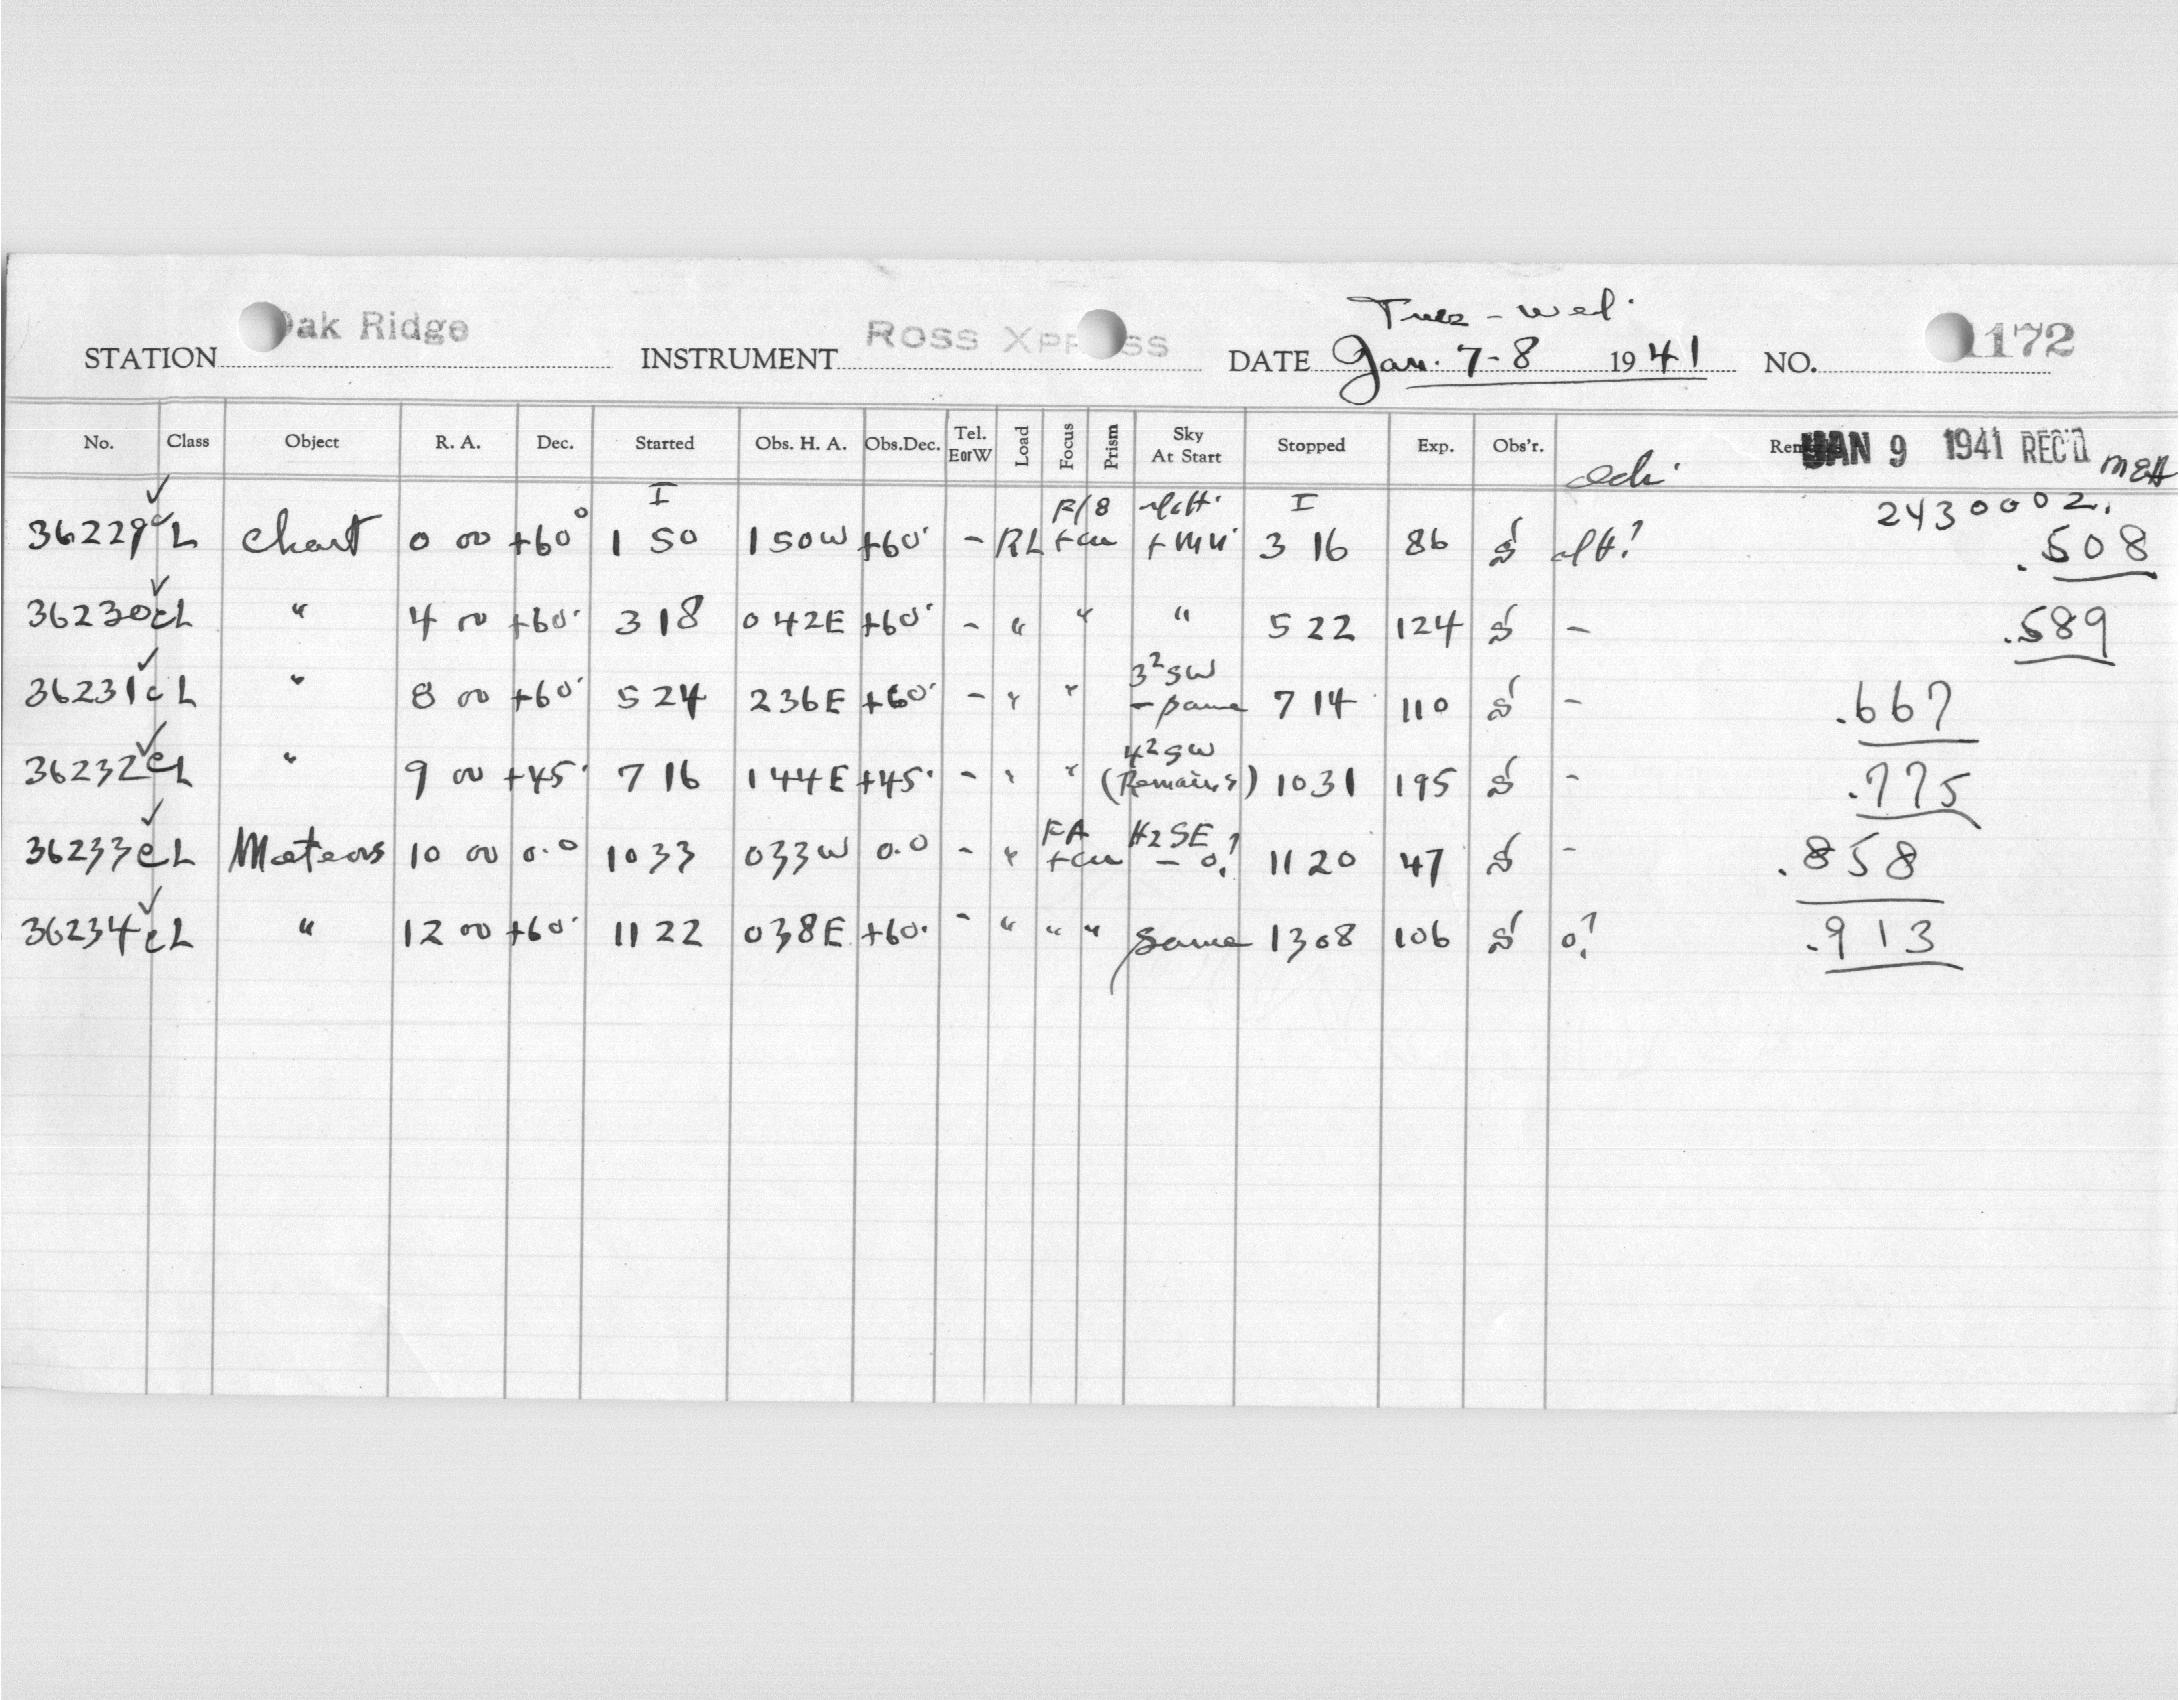 Tues - Wed.
STATION Oak Ridge INSTRUMENT ROSS XPRESS DATE Jan. 7-8 1941 NO. 1172
No. Class Object R. A. Dec. Started Obs. H. A. Obs. Dec. Tel. E or W Load Focus Prism Sky At Start Stopped Exp. Obs'r. JAN 9 1941 REC'D
I I 2430002.
36229 cL Chart 0 00 +60° 1 50 1 50 W +60° - RL 3 16 86 .508
36230 cL " 4 00 +60° 3 18 0 42 E +60° - " " " 5 22 124 - .589
3² SW
36231 cL " 8 00 +60° 5 24 2 36 E +60° - " " - same 7 14 110 - .667
4² SW
36232 cL " 9 00 +45° 7 16 1 44 E +45° - " " (Remains) 10 31 195 - .775
FA H2 SE
36233 cL Meteors 10 00 0.0 10 33 0 33 W 0.0 - " - 0? 11 20 47 - .858
36234 cL " 12 00 +60° 11 22 0 38 E +60° - " " " same 13 08 106 0? .913